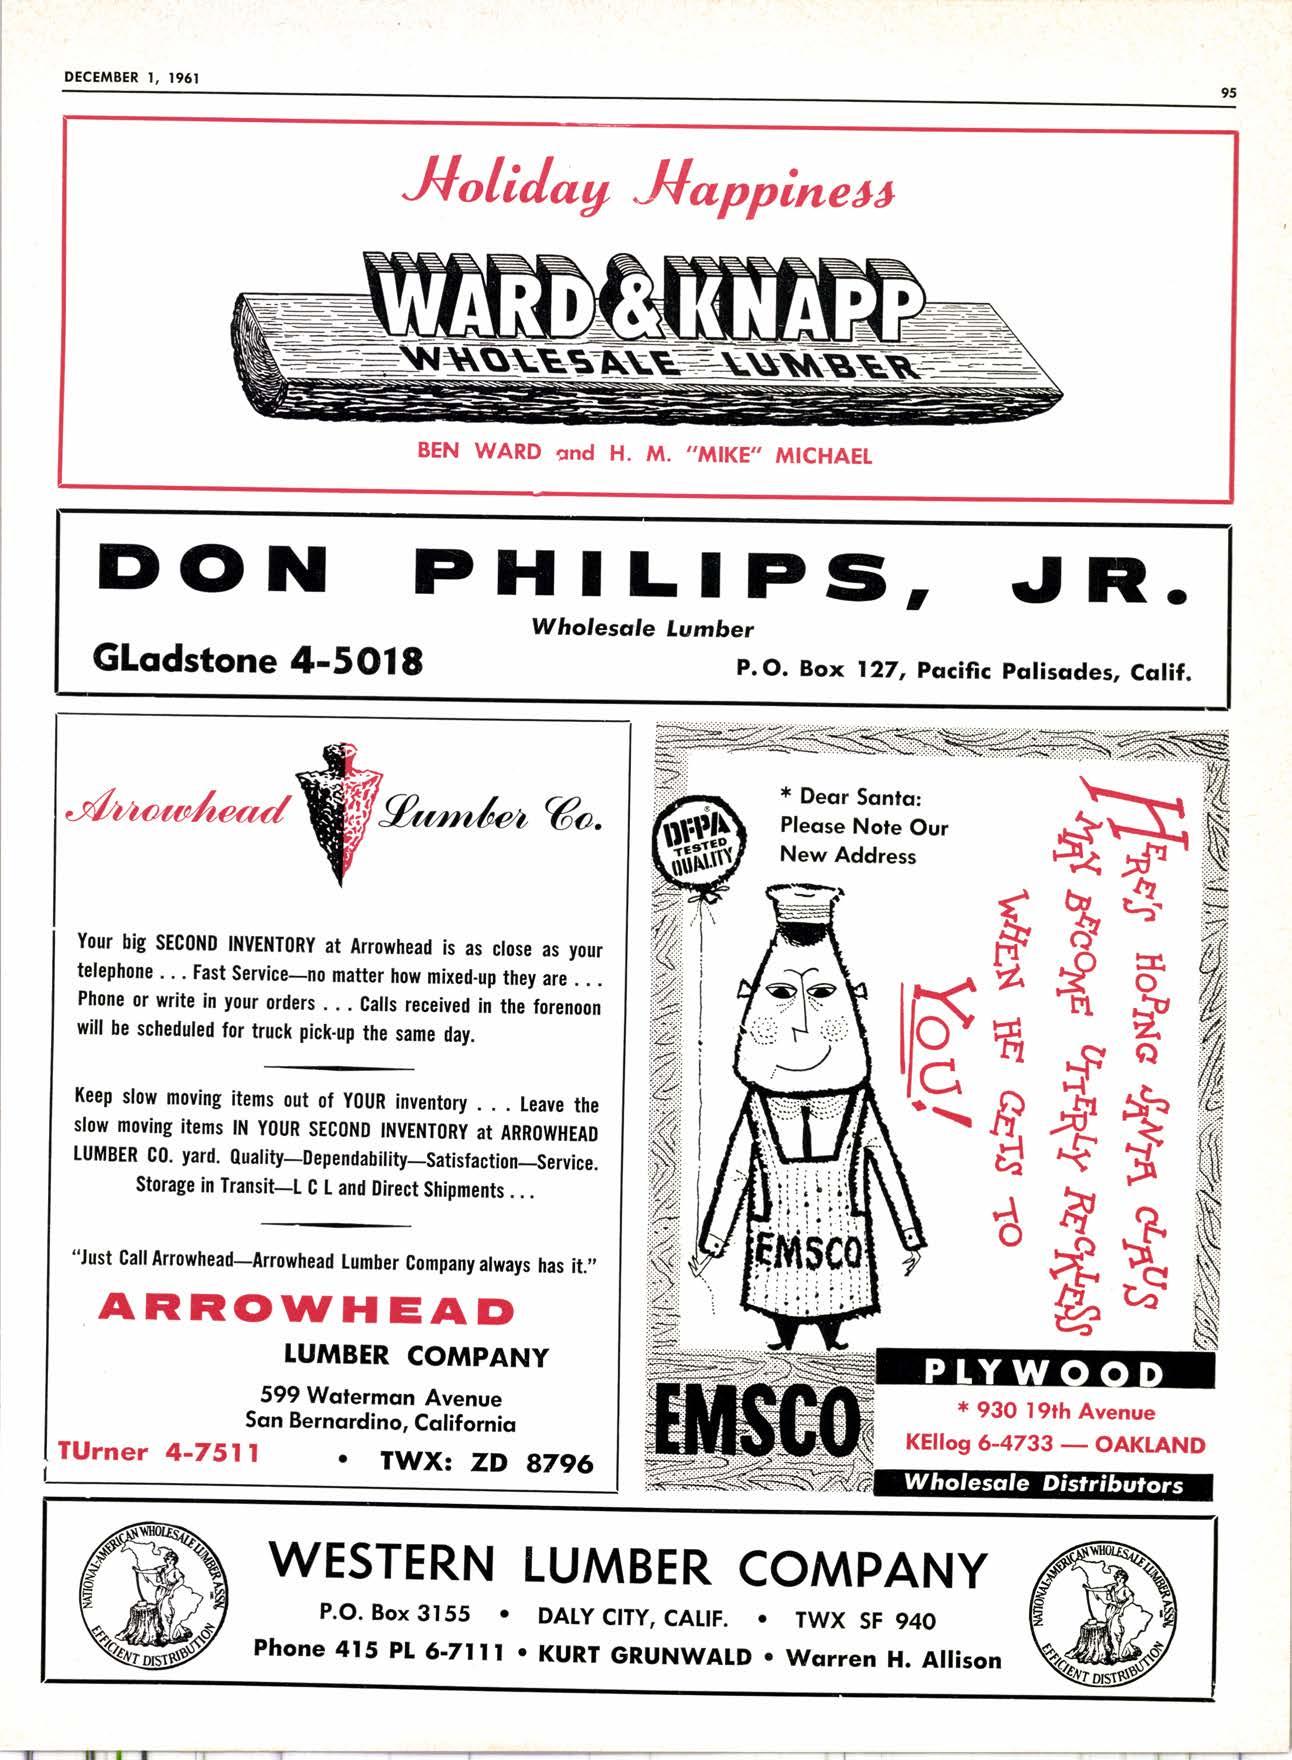 DECEMBER 1, 1961
95
Holiday Happiness
WARD & KNAPP
WHOLESALE LUMBER
BEN WARD and H. M. "MIKE" MICHAEL
DON PHILIPS, JR.
Wholesale Lumber
GLadstone 4-5018
P.O. Box 127, Pacific Palisades, Calif.
Arrowhead Lumber Co.
Your big SECOND INVENTORY at Arrowhead is as close as your
telephone . . . Fast Service—no matter how mixed-up they are . . .
Phone or write in your orders . . . Calls received in the forenoon
will be scheduled for truck pick-up the same day.
Keep slow moving items out of YOUR inventory . . . Leave the
slow moving items IN YOUR SECOND INVENTORY at ARROWHEAD
LUMBER CO. yard. Quality—Dependability—Satisfaction—Service.
Storage in Transit—L C L and Direct Shipments . . .
"Just Call Arrowhead—Arrowhead Lumber Company always has it."
ARROWHEAD
LUMBER COMPANY
599 Waterman Avenue
San Bernardino, California
TUrner 4-7511 • TWX: ZD 8796
DFPA
®
TESTED
QUALITY
* Dear Santa:
Please Note Our
New Address
HERE'S HOPING SANTA CLAUS
MAY BECOME UTTERLY RECKLESS
WHEN HE GETS TO
YOU!
EMSCO
EMSCO
PLYWOOD
* 930 19th Avenue
KEllog 6-4733 — OAKLAND
Wholesale Distributors
NATIONAL-AMERICAN WHOLESALE LUMBER ASSN.
EFFICIENT DISTRIBUTION
WESTERN LUMBER COMPANY
P.O. Box 3155 • DALY CITY, CALIF. • TWX SF 940
Phone 415 PL 6-7111 • KURT GRUNWALD • Warren H. Allison
NATIONAL-AMERICAN WHOLESALE LUMBER ASSN.
EFFICIENT DISTRIBUTION